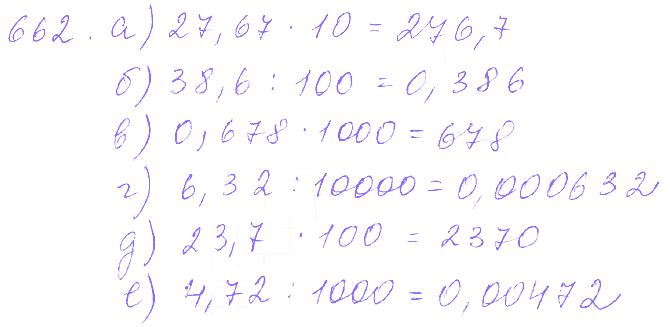 662. а) 27,67 · 10 = 276,7
б) 38,6 : 100 = 0,386
в) 0,678 · 1000 = 678
г) 6,32 : 10000 = 0,000632
д) 23,7 · 100 = 2370
е) 4,72 : 1000 = 0,00472